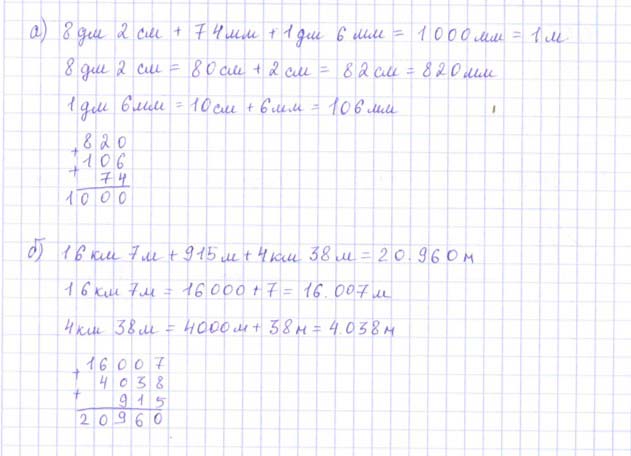 а) 8 дм 2 см + 74мм + 1 дм 6 мм = 1000мм = 1 м
8 дм 2 см = 80см + 2 см = 82см = 820мм
1 дм 6мм = 10см + 6мм = 106мм
820
+ 106
+ 74
1000
б) 16 км 7м + 915м + 4км 38м = 20.960м
16км 7м = 16000 + 7 = 16.007м
4км 38м = 4000м + 38м = 4.038м
16007
+ 4038
+ 915
20960